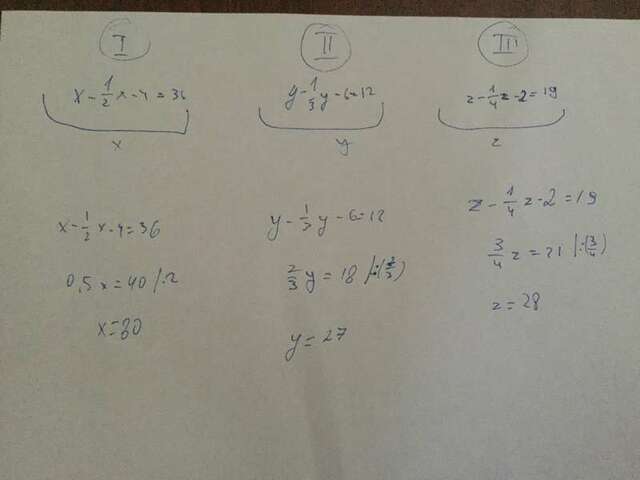 I
x - 1/2 x - 4 = 36
x
x - 1/2 x - 4 = 36
0,5x = 40 /·2
x = 80
II
y - 1/3 y - 6 = 12
y
y - 1/3 y - 6 = 12
2/3 y = 18 /:(2/3)
y = 27
III
z - 1/4 z - 2 = 19
z
z - 1/4 z - 2 = 19
3/4 z = 21 /:(3/4)
z = 28